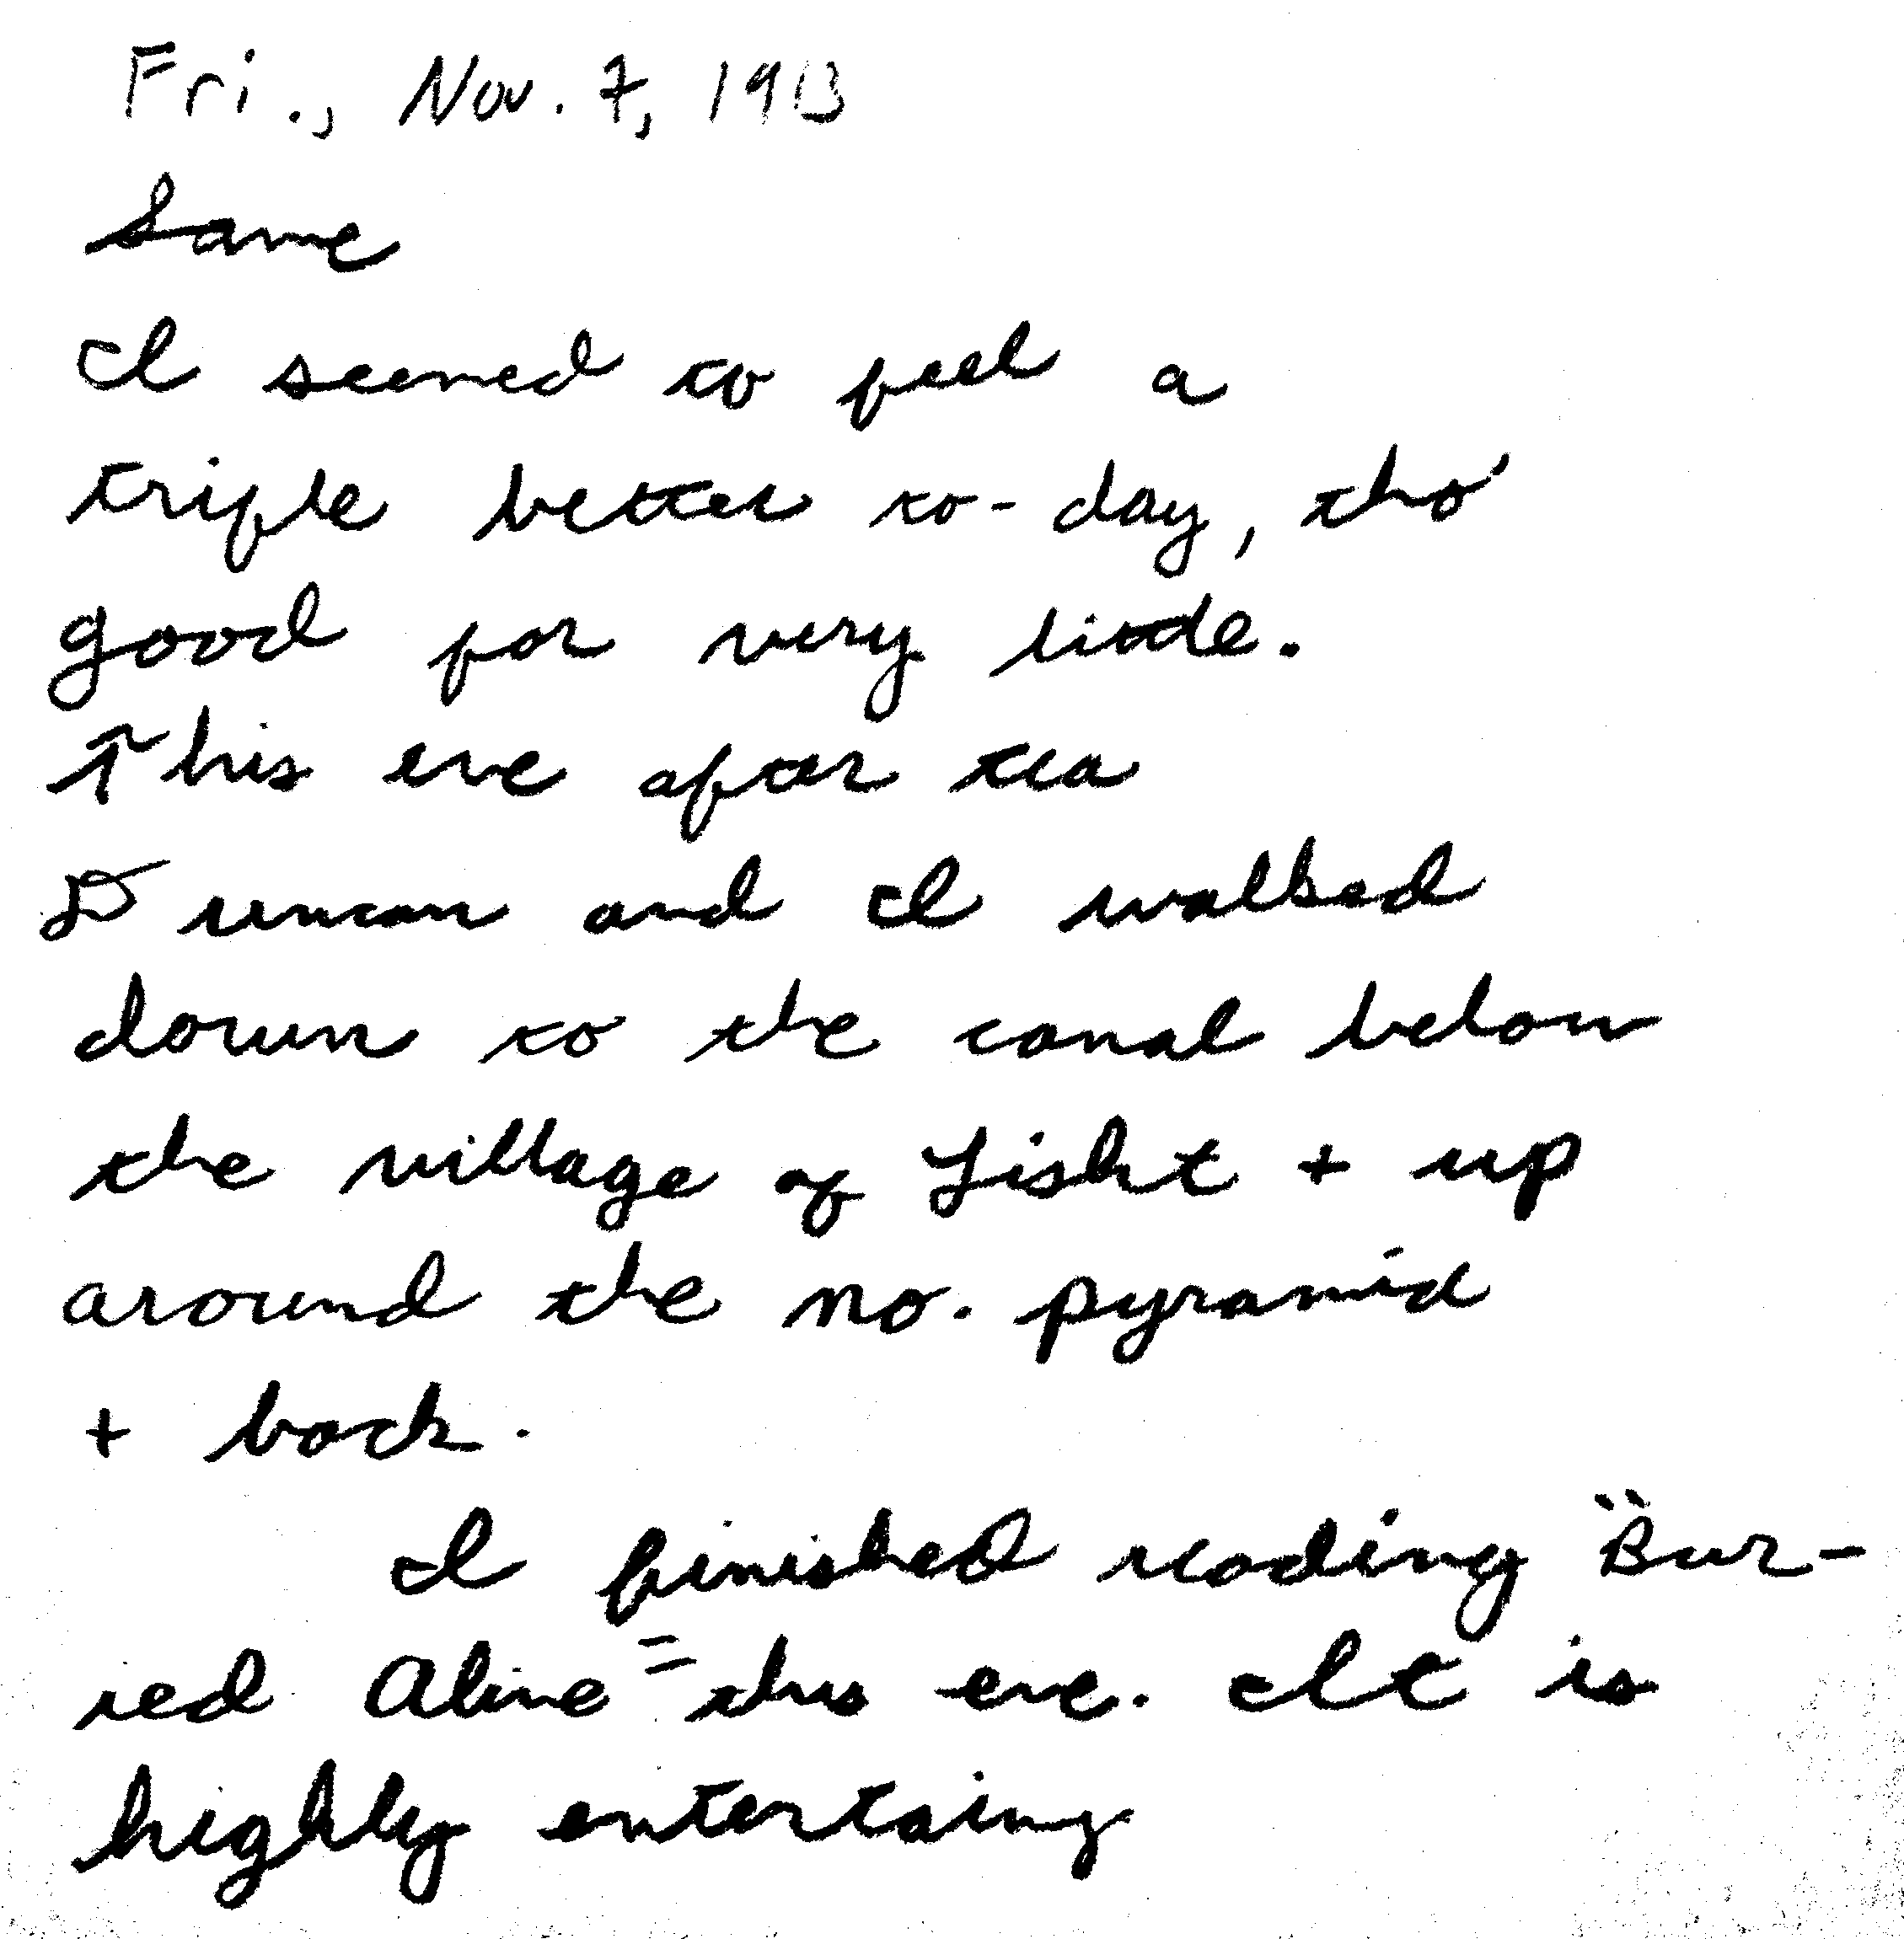 Fri., Nov. 7, 1913
Same
I seemed to feel a
trifle better to-day, tho'
good for very little.
This eve after tea
Duncan and I walked
down to the canal below
the village of Lisht + up
around the no. pyramid
+ back.
I finished reading "Bur-
ied Alive" this eve. It is
highly entertaing